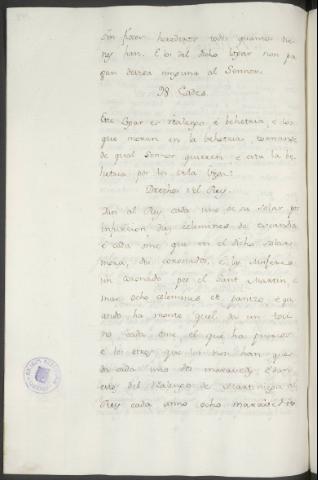 sin facer heredatos todos quantos bie-
nes han. E los del dicho Logar non pa
gan derecho ninguno al Sennor.
98 Cades.
Este Logar es Realengo è behetria, e los
que moran en la behetria, tornanse
de qual Sennor quieren e esta la be-
hetria por los en la
Derechos del Rey.
Dan al Rey cada uno de su solar por
infurcion dos celemines de escandia
è cada ome que en el dicho solar
mora, dos coronados, è las Mugeres
un coronado por el Sant Martin è
mas ocho celemines de panizo, e qu
ando ha monte quel dé un toci
no cada ome el que ha puercos
è los otros que los non han que
dé cada uno dos maravedis, è dan
mas del Realengo de Martiniega al
Rey cada anno ocho maravedis